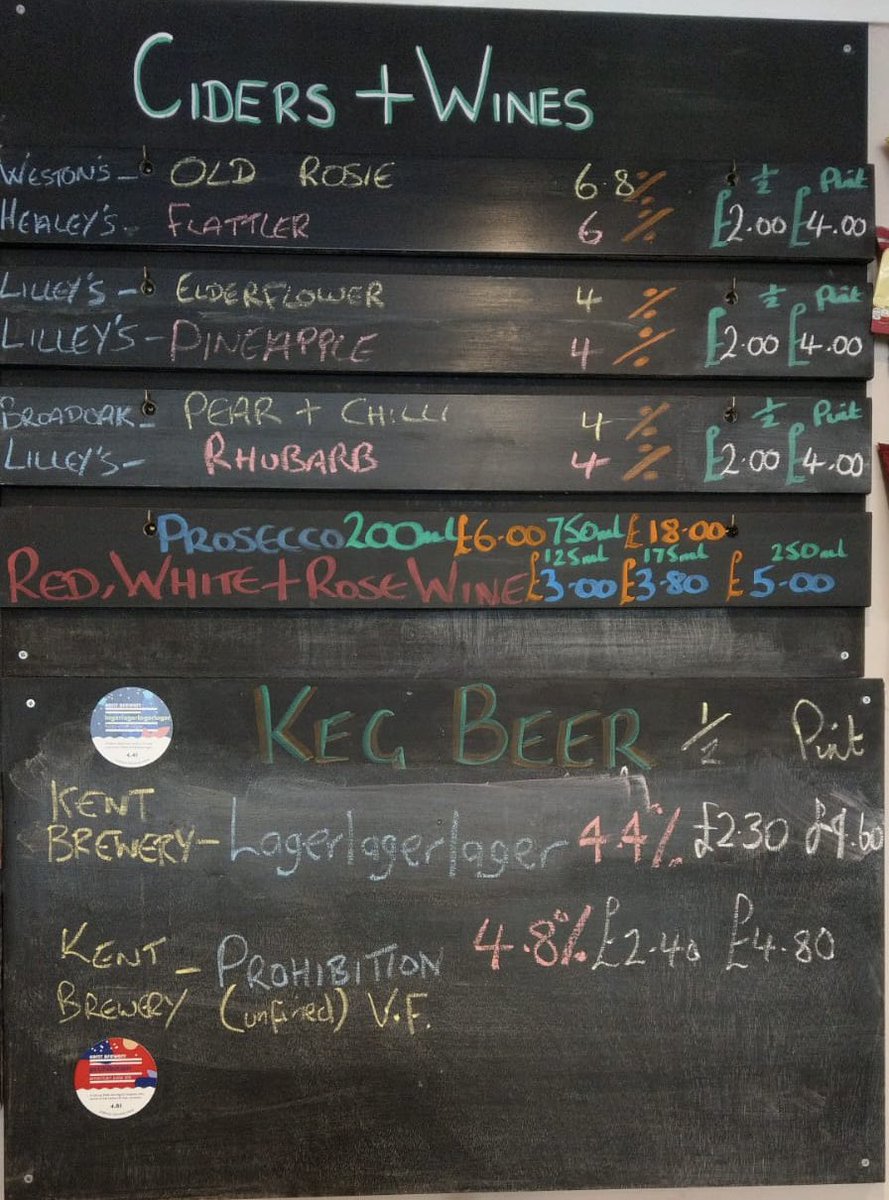 CIDERS + WINES
½ Pint
WESTON'S - OLD ROSIE 6.8%
HEALEY'S - FLATTLER 6 % £2.00 £4.00
½ Pint
LILLEY'S - ELDERFLOWER 4 %
LILLEY'S - PINEAPPLE 4 % £2.00 £4.00
½ Pint
BROADOAK - PEAR + CHILLI 4 %
LILLEY'S - RHUBARB 4 % £2.00 £4.00
PROSECCO 200ml £6.00 750ml £18.00
125ml 175ml 250ml
RED, WHITE + ROSE WINE £3.00 £3.80 £5.00
KEG BEER ½ Pint
lagerlagerlagerlager
4.4%
KENT
BREWERY - Lagerlagerlager 4.4% £2.30 £4.60
KENT
BREWERY - PROHIBITION 4.8% £2.40 £4.80
(unfined) V.F.
KENT BREWERY
4.8%